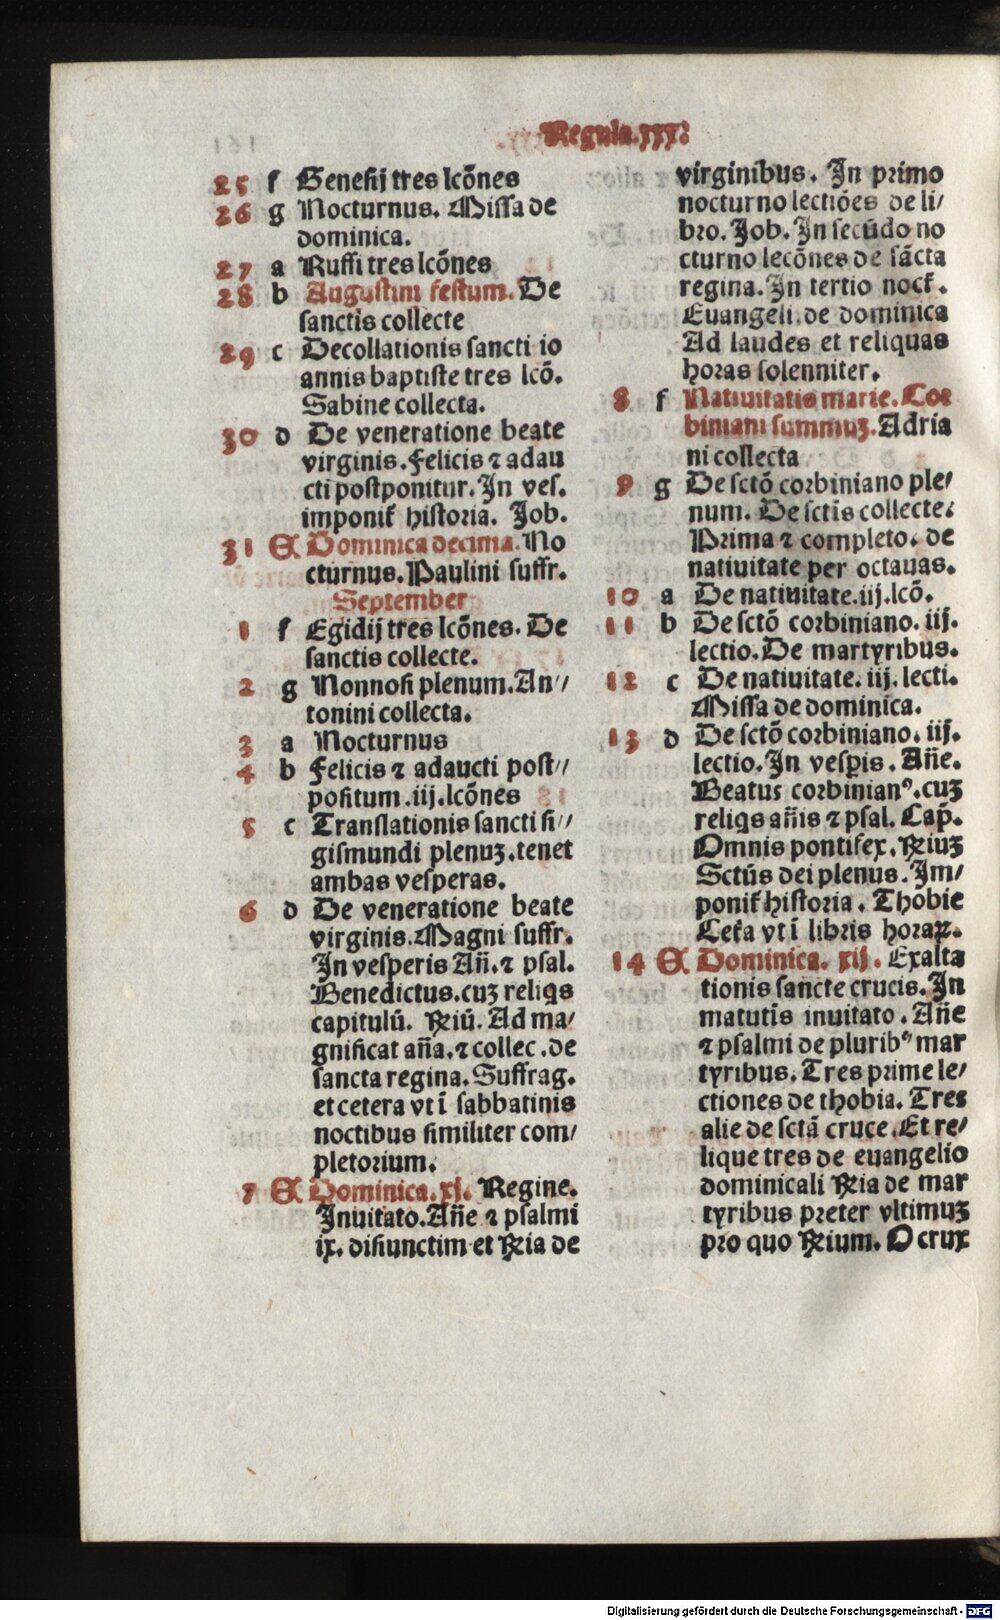 Regula.xxx:
25 f Genesij tres lcōnes
26 g Nocturnus. Missa de
dominica.
27 a Ruffi tres lcōnes
28 b Augustini festum. De
sanctis collecte
29 c Decollationis sancti io
annis baptiste tres lcō.
Sabine collecta.
30 d De veneratione beate
virginis. Felicis ⁊ adau
cti postponitur. In ves.
imponit̄ historia. Job.
31 A Dominica decima. No
cturnus. Paulini suffr.
September
1 f Egidij tres lcōnes. De
sanctis collecte.
2 g Nonnosi plenum. An⸗
tonini collecta.
3 a Nocturnus
4 b Felicis ⁊ adaucti post⸗
positum .iij. lcōnes
5 c Translationis sancti si⸗
gismundi plenuʒ. tenet
ambas vesperas.
6 d De veneratione beate
virginis. Magni suffr.
In vesperis Añ. ⁊ psal.
Benedictus. cuʒ reliqs
capitulū. ℟iū. Ad ma/
gnificat aña. ⁊ collec. de
sancta regina. Suffrag.
et cetera vt ī sabbatinis
noctibus similiter com/
pletorium.
7 A Dominica. xj. Regine.
Inuitato. Añe ⁊ psalmi
ix. disiunctim et ℟ia de
virginibus. In primo
nocturno lectiōes de li/
bro. Job. In secūdo no
cturno lecōnes de sācta
regina. In tertio noct̄.
Euangeli. de dominica
Ad laudes et reliquas
horas solenniter.
8 f Natiuitatis marie. Cor
biniani summuʒ. Adria
ni collecta
9 g De sctō corbiniano ple/
num. De sctis collecte:
Prima ⁊ completo. de
natiuitate per octauas.
10 a De natiuitate .iij. lcō.
11 b De sctō corbiniano. iij.
lectio. De martyribus.
12 c De natiuitate. iij. lecti.
Missa de dominica.
13 d De sctō corbiniano. iij.
lectio. In vesp̄is. Añe.
Beatus corbinianꝰ. cuʒ
reliqs añis ⁊ psal. Cap̄.
Omnis pontifex. ℟iuʒ
Sctūs dei plenus. Im/
ponit̄ historia. Thobie
Cet̄a vt ī libris horaꝝ.
14 A Dominica. xij. Exalta
tionis sancte crucis. In
matutīs inuitato. Añe
⁊ psalmi de pluribꝰ mar
tyribus. Tres prime le/
ctiones de thobia. Tres
alie de sctā cruce. Et re/
lique tres de euangelio
dominicali ℟ia de mar
tyribus preter vltimuʒ
pro quo ℟ium. O crux
Digitalisierung gefördert durch die Deutsche Forschungsgemeinschaft - DFG